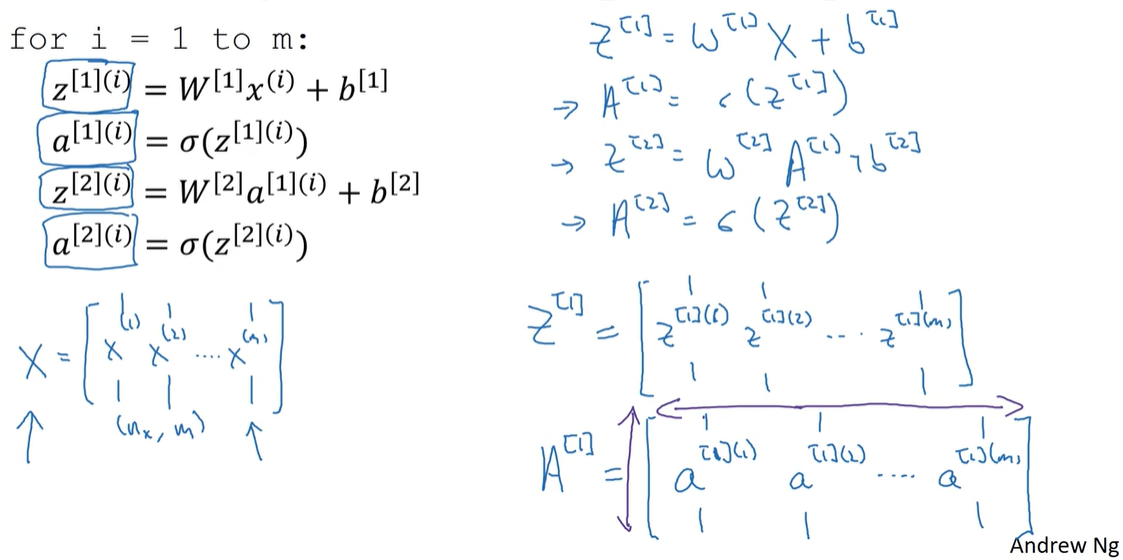 for i = 1 to m:
z[1](i) = W[1]x(i) + b[1]
a[1](i) = σ(z[1](i))
z[2](i) = W[2]a[1](i) + b[2]
a[2](i) = σ(z[2](i))
X = [ x(1) x(2) .... x(m) ]
(nx, m)
Z[1] = W[1] X + b[1]
→ A[1] = σ(Z[1])
→ Z[2] = W[2] A[1] + b[2]
→ A[2] = σ(Z[2])
Z[1] = [ z[1](1) z[1](2) ... z[1](m) ]
A[1] = [ a[1](1) a[1](2) .... a[1](m) ]
Andrew Ng